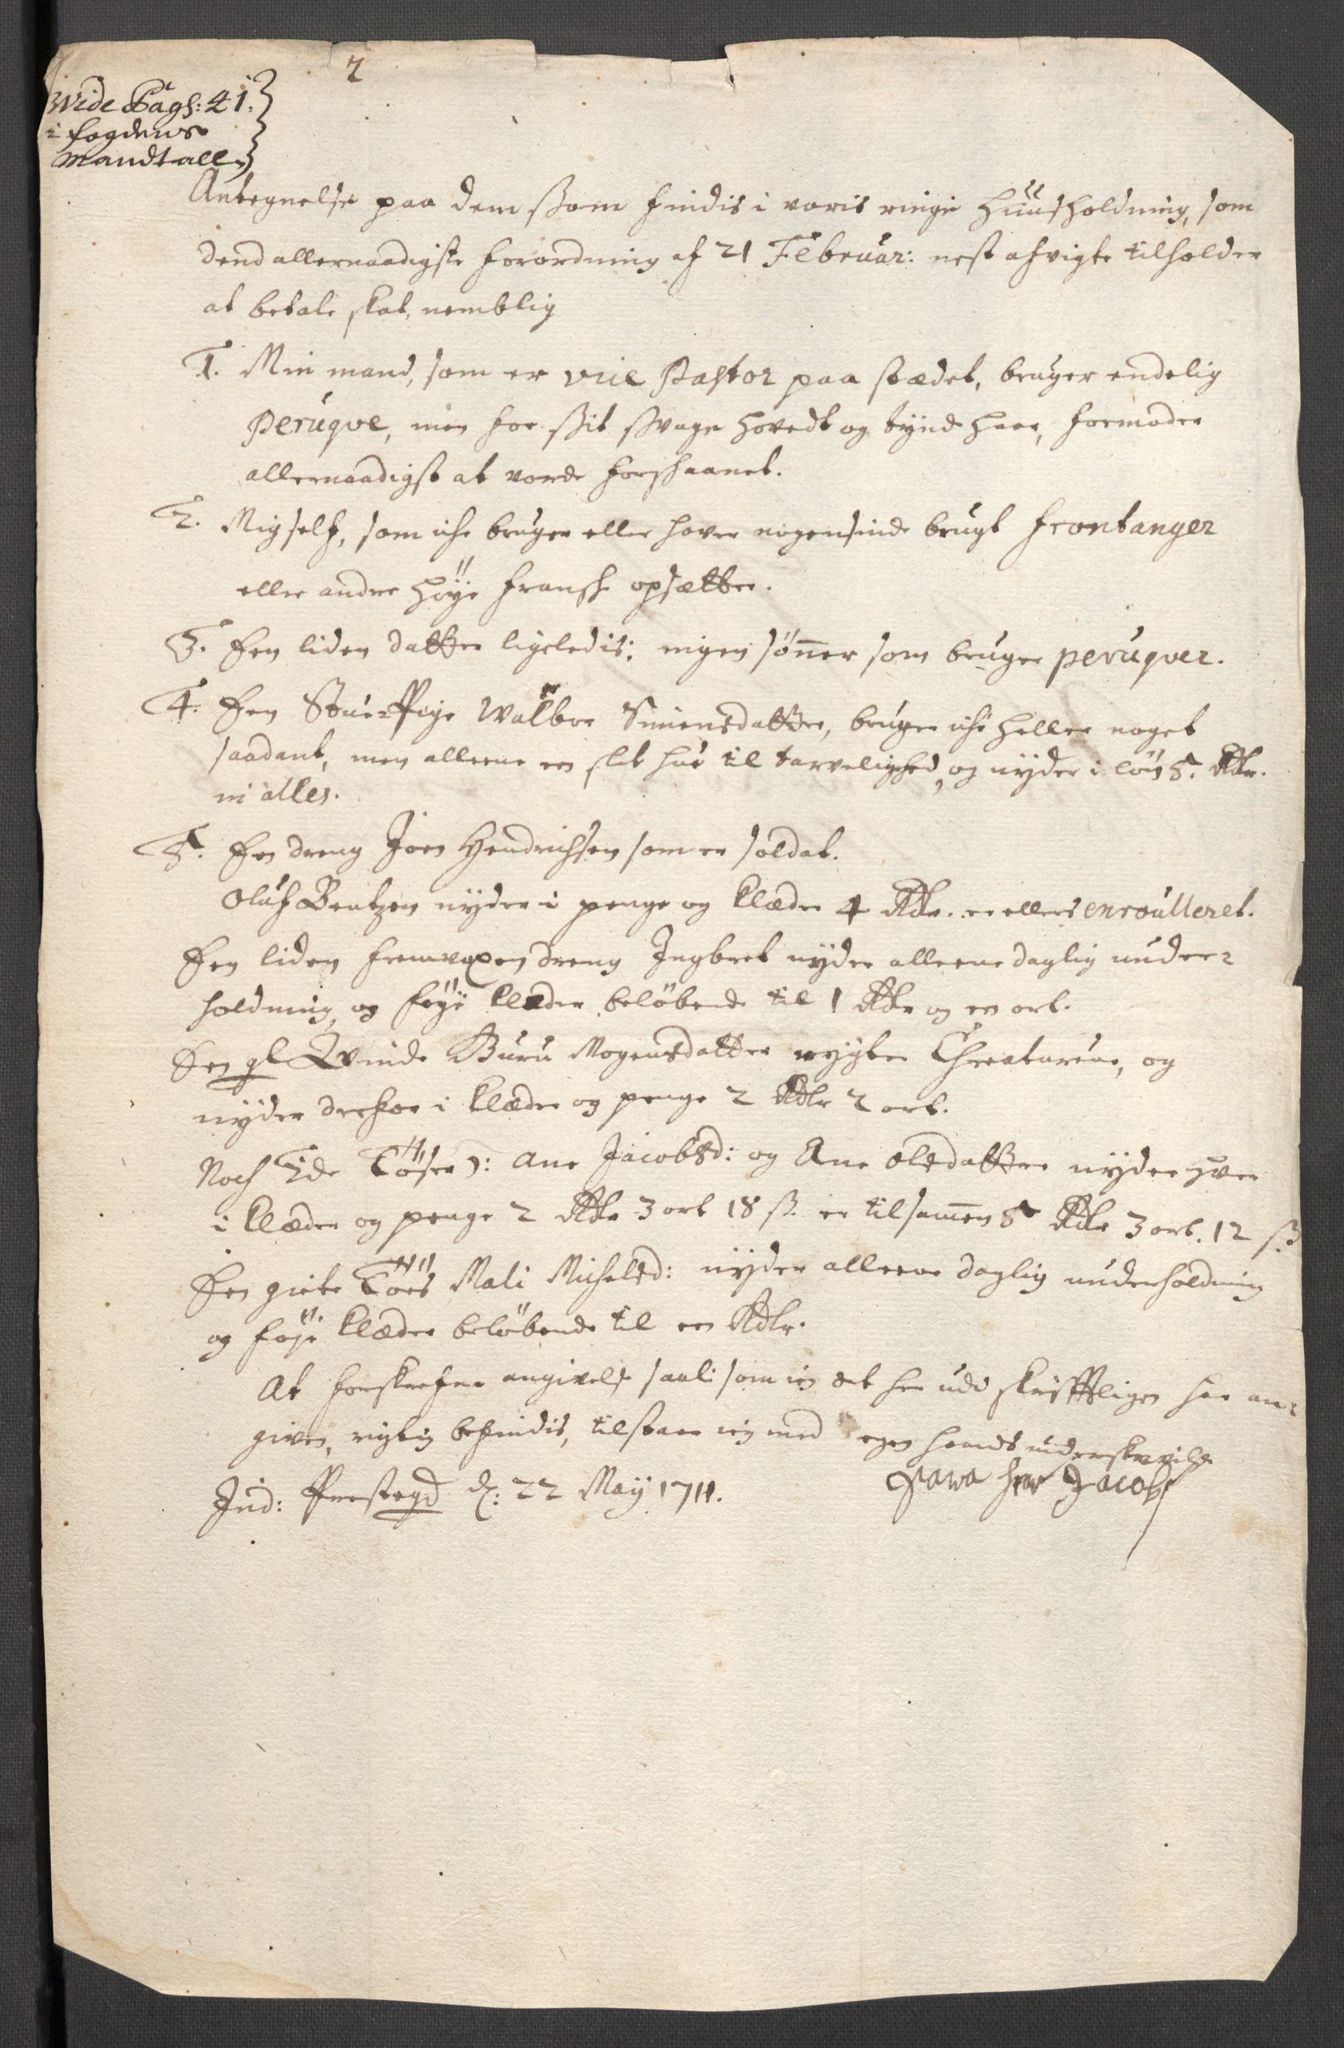 2
Vide Pag: 41.
i fogdens
Mandtall
Antegnelse paa dem ssom findis i voris ringe Huusholdning, som
dend allernaadigste forordning af 21 Februar: nest afvigte tilholder
at betale skat, nemblig
1. Min mand, som er vice Pastor paa stædet, bruger endelig
Peruqve, men for ssit ssvage hovedt og tynde haar, formoder
allernaadigst at vorde forskaanet.
2. Mig self, som iche bruger eller haver nogensinde brugt frontanger
eller andre høye franske opsætter.
3. Een liden datter ligeledis; ingen sønner som bruger peruqver.
4. Een Stue-Pige Walbor Simensdatter, bruger iche heller noget
saadant, men alleene en slet hue til tarvelighed, og nyder i løn 5 Rdr.
in alles.
5. Een dreng Joen Hendrichsen som er soldat.
Oluf Bentzen nyder i penge og Klæder 4 Rdr. er ellers enroulleret.
Een liden fremvoxen dreng Ingbret nyder alleene daglig under-
holdning, og føye Klæder beløbende til 1 Rdr og en ort.
Een gl Qvinde Buru Mogensdatter røgter Creaturene, og
nyder derfor i Klæder og penge 2 Rdlr 2 ort.
Noch 2de Tøser: Ane Jacobsd: og Ane Olsdatter nyder hver
i Klæder og penge 2 Rdr 3 ort 18 s. er tilsammen 5 Rdr 3 ort. 12 s
Een giete Tøes Mali Michelsd: nyder alleene daglig underholdning
og føye Klæder beløbende til een Rdlr.
At forskrefne angivelse saali som ieg det her udi skrifftligen har an-
given, rigtig befindis, tilstaar ieg med egen hands underskrivelse
Ind: Prestegd d: 22 May 1711.
Sara hr Jacobs